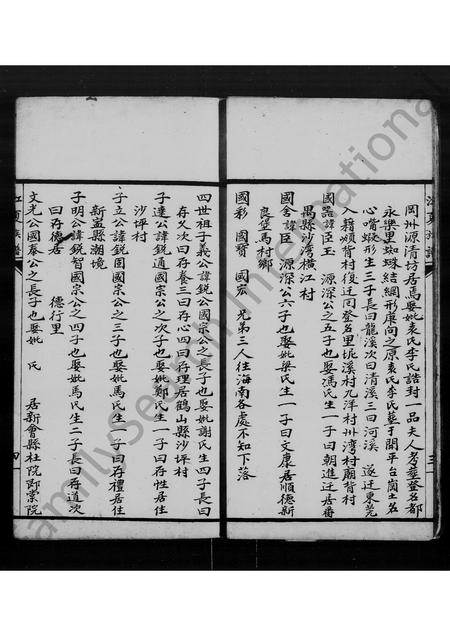 岡州源清坊居馬娶妣袁氏李氏誥封一品夫人考葬登名都
永樂里蜘蛛結網形庚向之原袁氏李氏葬于開平台崗土名
心嘴蝦形生三子長曰龍溪次曰清溪三曰河溪 遂迁東莞
入籍頰背村復迁回登名里坭溪村九洋村圳湾村廟背村
國器諱臣玉 源深公之五子也娶馮氏生一子曰朝進迁居番
禺縣沙湾横江村
國舍諱臣 源深公六子也娶妣梁氏生一子曰文康居順德新
良堡馬村鄉
國彩 國寶 國宏 兄弟三人往海南各處不知下落
三
四世祖子義公諱銳公國宗公之長子也娶妣謝氏生四子長曰
存义次曰存養三曰存心四曰存理居鶴山縣沙坪村
子達公諱銳通國宗公之次子也娶妣鄭氏生一子曰存性居住
沙坪村
子立公諱銳圖國宗公之三子也娶妣馬氏生一子曰存禮居住
新寧縣潮境
子明公諱銳智國宗公之四子也娶妣馬氏生二子長曰存道次
曰存德居 德行里
文光公國泰公之長子也娶妣 氏 居新會縣杜院郎棠院
江夏族譜
四
FamilySearch International